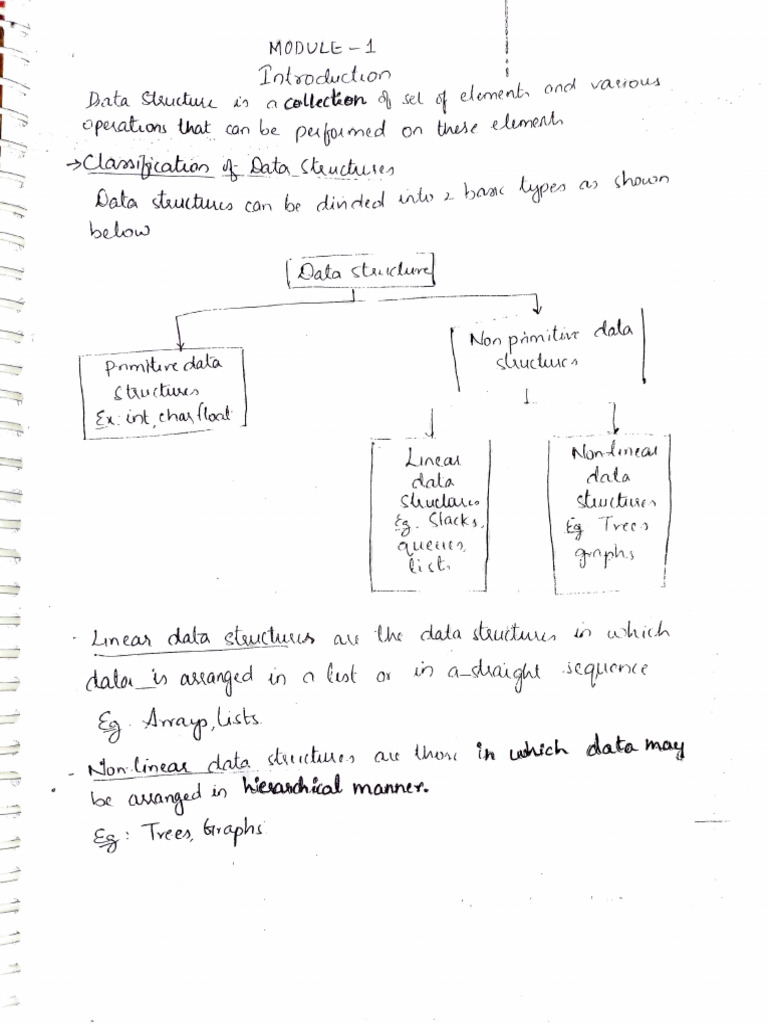 MODULE - 1
Introduction
Data Structure is a collection of set of elements and various
operations that can be performed on these elements
→ Classification of Data Structures
Data structures can be divided into 2 basic types as shown
below
Data structure
Non primitive data
structures
Primitive data
structures
Ex: int, char, float
Linear
data
structures
Eg. Stacks,
queues,
list.
Non-linear
data
structures
Eg Trees
graphs
. Linear data structures are the data structures in which
data is arranged in a list or in a straight sequence
Eg. Arrays, Lists
- Non-linear data structures are those in which data may
be arranged in hierarchical manner.
Eg: Trees, Graphs